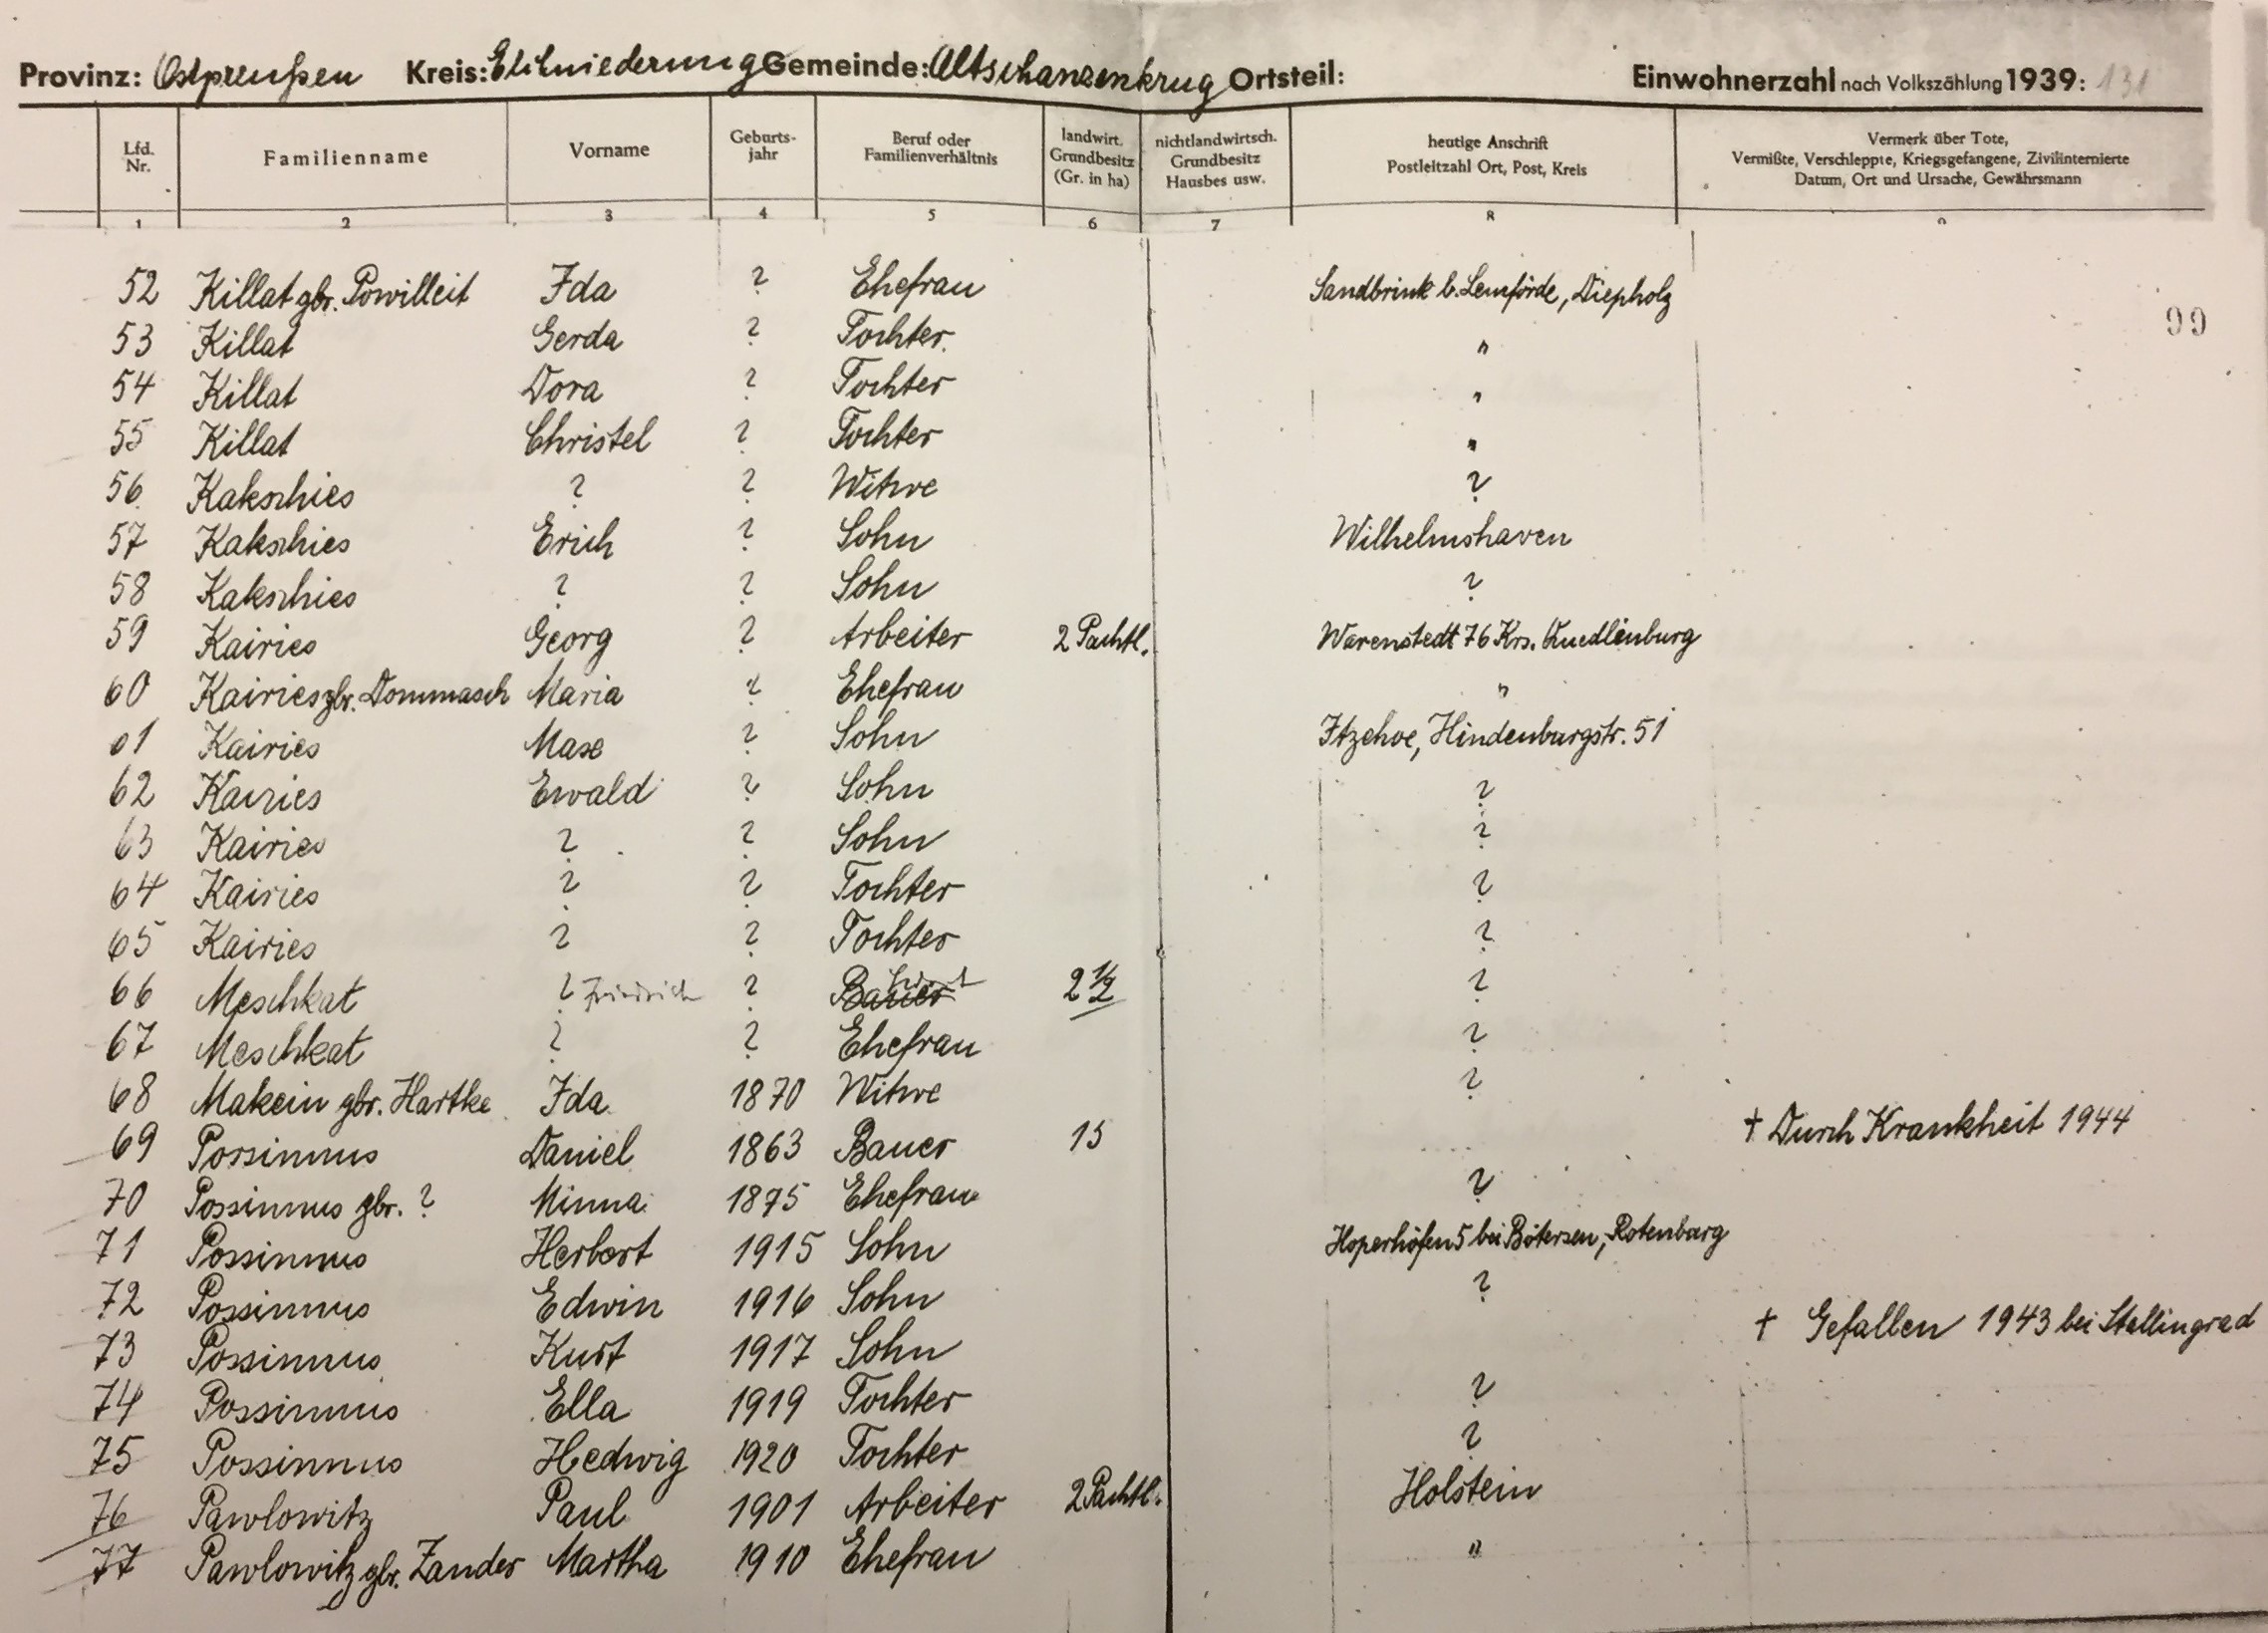 Provinz: Ostpreußen Kreis: Elchniederung Gemeinde: Altschanzenkrug Ortsteil: Einwohnerzahl nach Volkszählung 1939: 131
Lfd. Nr. Familienname Vorname Geburts-jahr Beruf oder Familienverhältnis landwirt. Grundbesitz (Gr. in ha) nichtlandwirtsch. Grundbesitz Hausbes usw. heutige Anschrift Postleitzahl Ort, Post, Kreis Vermerk über Tote, Vermißte, Verschleppte, Kriegsgefangene, Zivilinternierte Datum, Ort und Ursache, Gewährsmann
1 2 3 4 5 6 7 8 9
52 Killat gbr. Powilleit Ida ? Ehefrau Sandbrink b. Lemförde, Diepholz
99
53 Killat Gerda ? Tochter "
54 Killat Dora ? Tochter "
55 Killat Christel ? Tochter "
56 Kakschies ? ? Witwe ?
57 Kakschies Erich ? Sohn Wilhelmshaven
58 Kakschies ? ? Sohn ?
59 Kairies Georg ? Arbeiter 2 Pachtl. Warenstedt 76 Krs. Quedlinburg
60 Kairies gbr. Dommasch Maria ? Ehefrau "
61 Kairies Max ? Sohn Itzehoe, Hindenburgstr. 51
62 Kairies Ewald ? Sohn ?
63 Kairies ? ? Sohn ?
64 Kairies ? ? Tochter ?
65 Kairies ? ? Tochter ?
66 Meschkat ? Friedrich ? Bauer 2 1/2 ?
67 Meschkat ? ? Ehefrau ?
68 Makein gbr. Hartke Ida 1870 Witwe ?
69 Possinnus Daniel 1863 Bauer 15 † Durch Krankheit 1944
70 Possinnus gbr. ? Minna 1875 Ehefrau ?
71 Possinnus Herbert 1915 Sohn Hoperhöfen 5 bei Bötersen, Rotenburg
72 Possinnus Edwin 1916 Sohn ?
73 Possinnus Kurt 1917 Sohn † Gefallen 1943 bei Stallingrad
74 Possinnus Ella 1919 Tochter ?
75 Possinnus Hedwig 1920 Tochter ?
76 Pawlowitz Paul 1901 Arbeiter 2 Pachtl. Holstein
77 Pawlowitz gbr. Zander Martha 1910 Ehefrau "